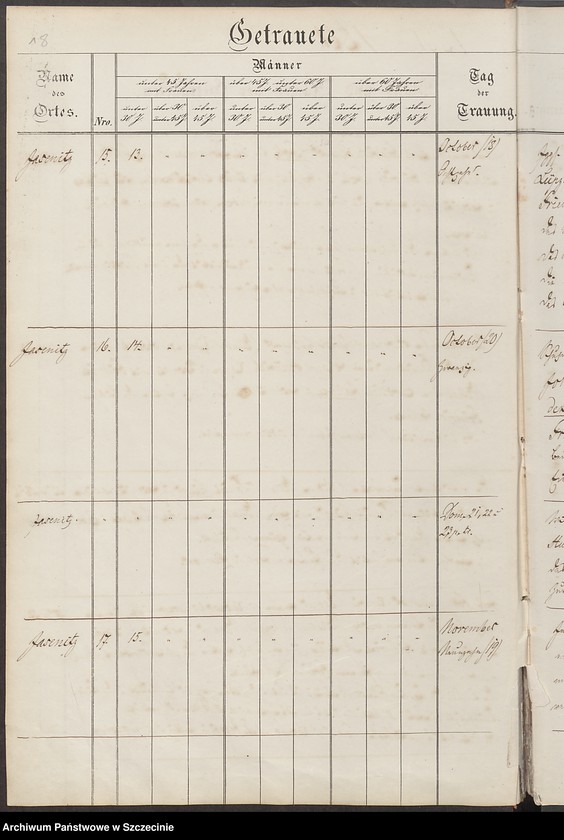 18
Getrauete
Name
des
Ortes.
Nro.
Männer
Tag
der
Trauung.
unter 45 Jahren
mit Frauen
über 45 J. unter 60 J.
mit Frauen
über 60 Jahren
mit Frauen
unter 30 J.
über 30 unter 45 J.
über 45 J.
unter 30 J.
über 30 unter 45 J.
über 45 J.
unter 30 J.
über 30 unter 45 J.
über 45 J.
Jasenitz 15. 13. " " " " " " " " October (18)
Jasenitz 16. 14. " " " " " " " " October (20)
Jasenitz. " " " " " " " " " " Dom. 21, 22 u
23 p. tr.
Jasenitz 17. 15. " " " " " " " " November
(19)
Archiwum Państwowe w Szczecinie